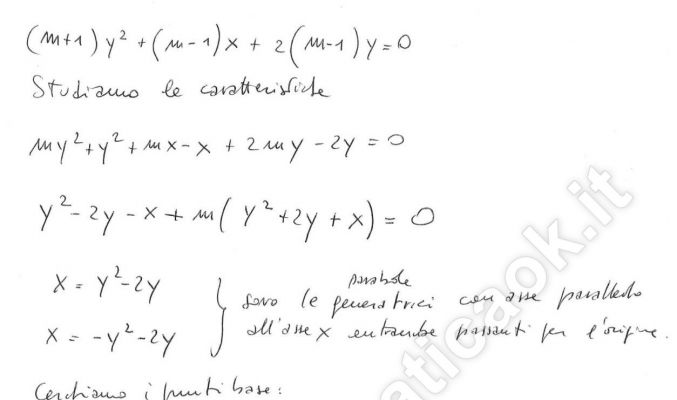 (m+1)y²+(m-1)x+2(m-1)y=0
Studiamo le caratteristiche
my²+y²+mx-x+2my-2y=0
y²-2y-x+m(y²+2y+x)=0
x=y²-2y
x=-y²-2y
} sono le parabole generatrici con asse parallelo
all'asse x entrambe passanti per l'origine.
Cerchiamo i punti base:
aticaok.it